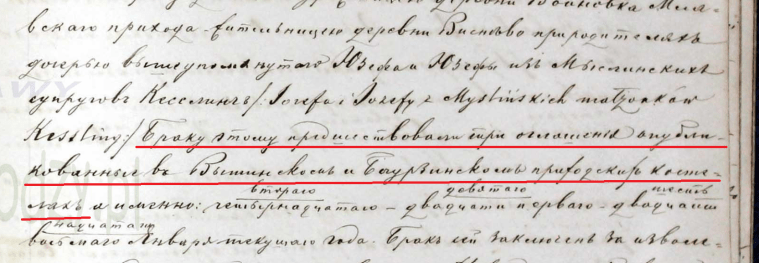 вскаго прихода жительницею деревни Виснево при родителяхъ
дочерью вышеупомянутаго Юзефа и Юзефы изъ Мыслинскихъ
супруговъ Кесслингъ /: Jozefa i Jozefy z Myslińskich małżonków
Kessling:/ Браку этому предшествовали три оглашения опубли-
кованныя въ и приходскихъ косте-
лахъ а именно: четырнадцатаго – двадцать перваго – двадцать
втораго девятаго шесть
надцатаго
восьмаго Января текущаго года. Бракъ сей заключенъ за изволе-